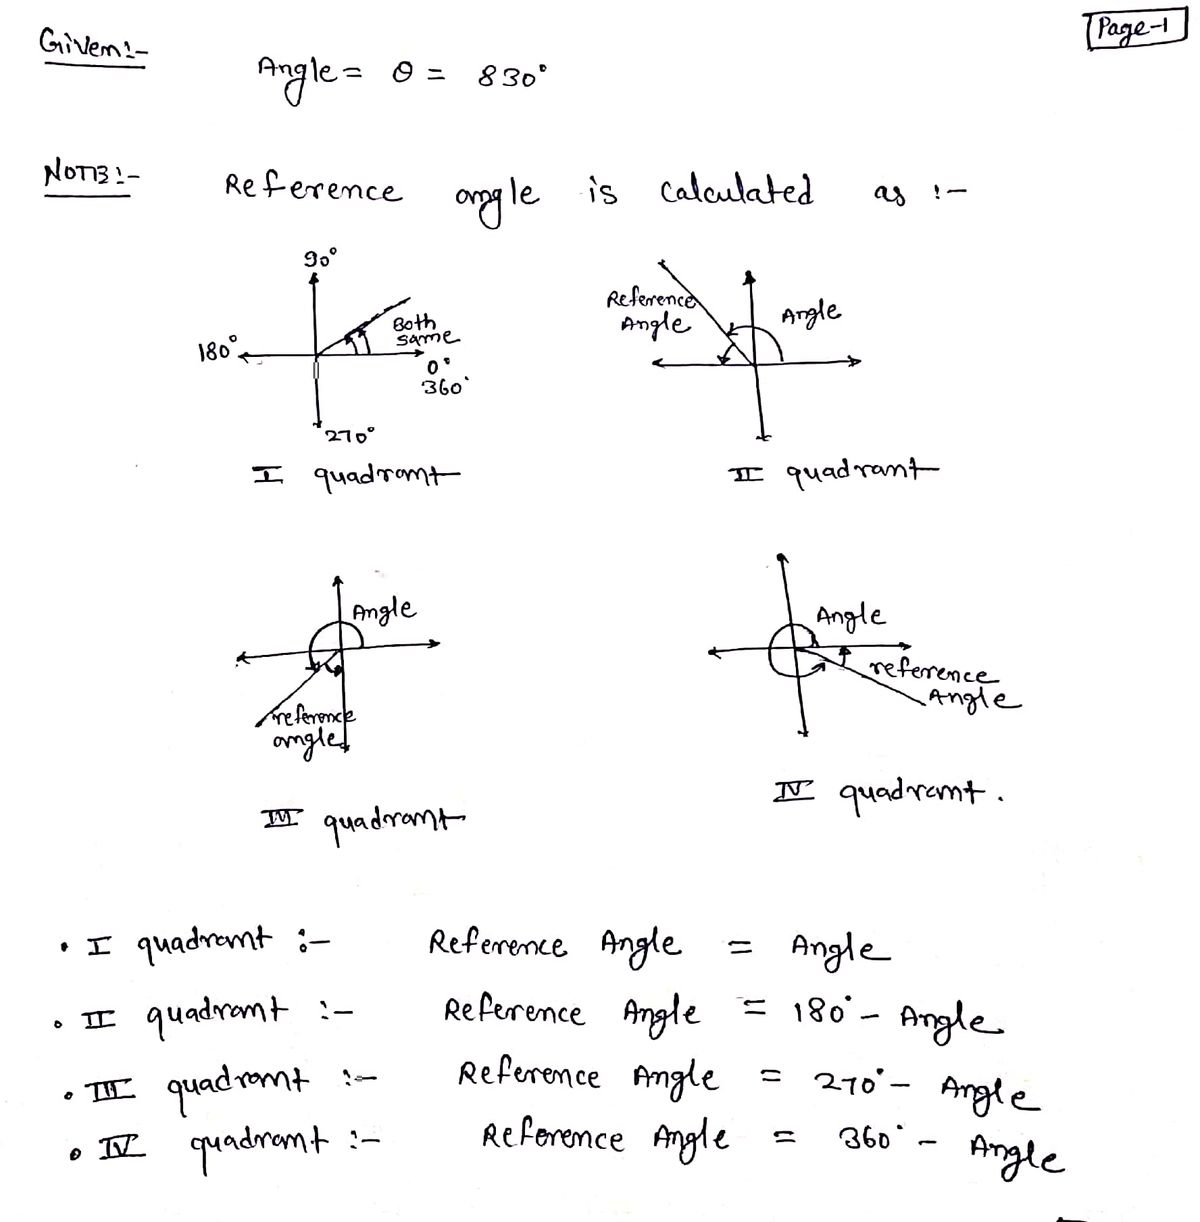 Page-1
Given:-
Angle = θ = 830°
NOTE:- Reference angle is calculated as :-
90°
180°
Both
same
0°
360°
270°
I quadrant
Reference
Angle
Angle
II quadrant
Angle
reference
angle
III quadrant
Angle
reference
Angle
IV quadrant.
• I quadrant :- Reference Angle = Angle
• II quadrant :- Reference Angle = 180° - Angle
• III quadrant :- Reference Angle = 270° - Angle
• IV quadrant :- Reference Angle = 360° - Angle